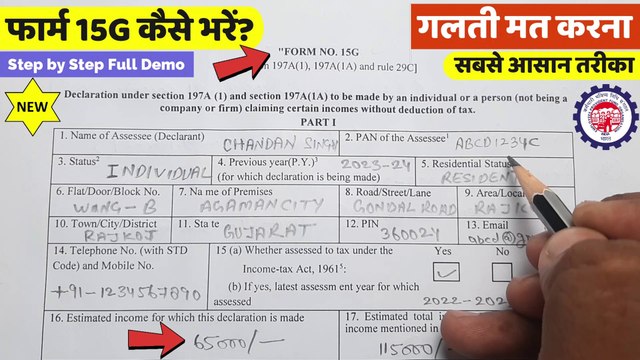 फार्म 15G कैसे भरें?
गलती मत करना
Step by Step Full Demo
सबसे आसान तरीका
NEW
"FORM NO. 15G
197A(1), 197A(1A) and rule 29C]
Declaration under section 197A (1) and section 197A(1A) to be made by an individual or a person (not being a
company or firm) claiming certain incomes without deduction of tax.
PART I
1. Name of Assessee (Declarant) CHANDAN SINGH
2. PAN of the Assessee¹ ABCD1234C
3. Status² INDIVIDUAL
4. Previous year(P.Y.)³ 2023-24
(for which declaration is being made)
5. Residential Status
RESIDENT
6. Flat/Door/Block No.
WANG-B
7. Name of Premises
AGAMANCITY
8. Road/Street/Lane
GONDAL ROAD
9. Area/Local
10. Town/City/District
RAJKOT
11. State
GUJARAT
12. PIN
360024
13. Email
abcd@g
14. Telephone No. (with STD
Code) and Mobile No.
+91-1234567890
15 (a) Whether assessed to tax under the
Income-tax Act, 1961⁵:
Yes
No
(b) If yes, latest assessment year for which
assessed
16. Estimated income for which this declaration is made
65000/-
17. Estimated total
income mentioned in
115000/-